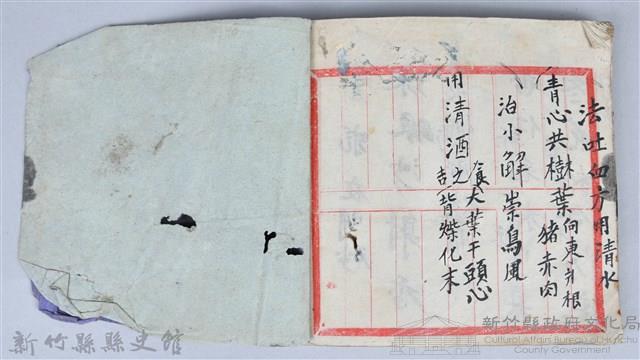 法吐血方用清水
青心共樹葉向東方根
林 猪赤肉
治小解崇鳥風
用清酒之食大葉干頭心
背燥化末
新竹縣縣史館
新竹縣政府文化局
Cultural Affairs Bureau of Hsinchu
County Government